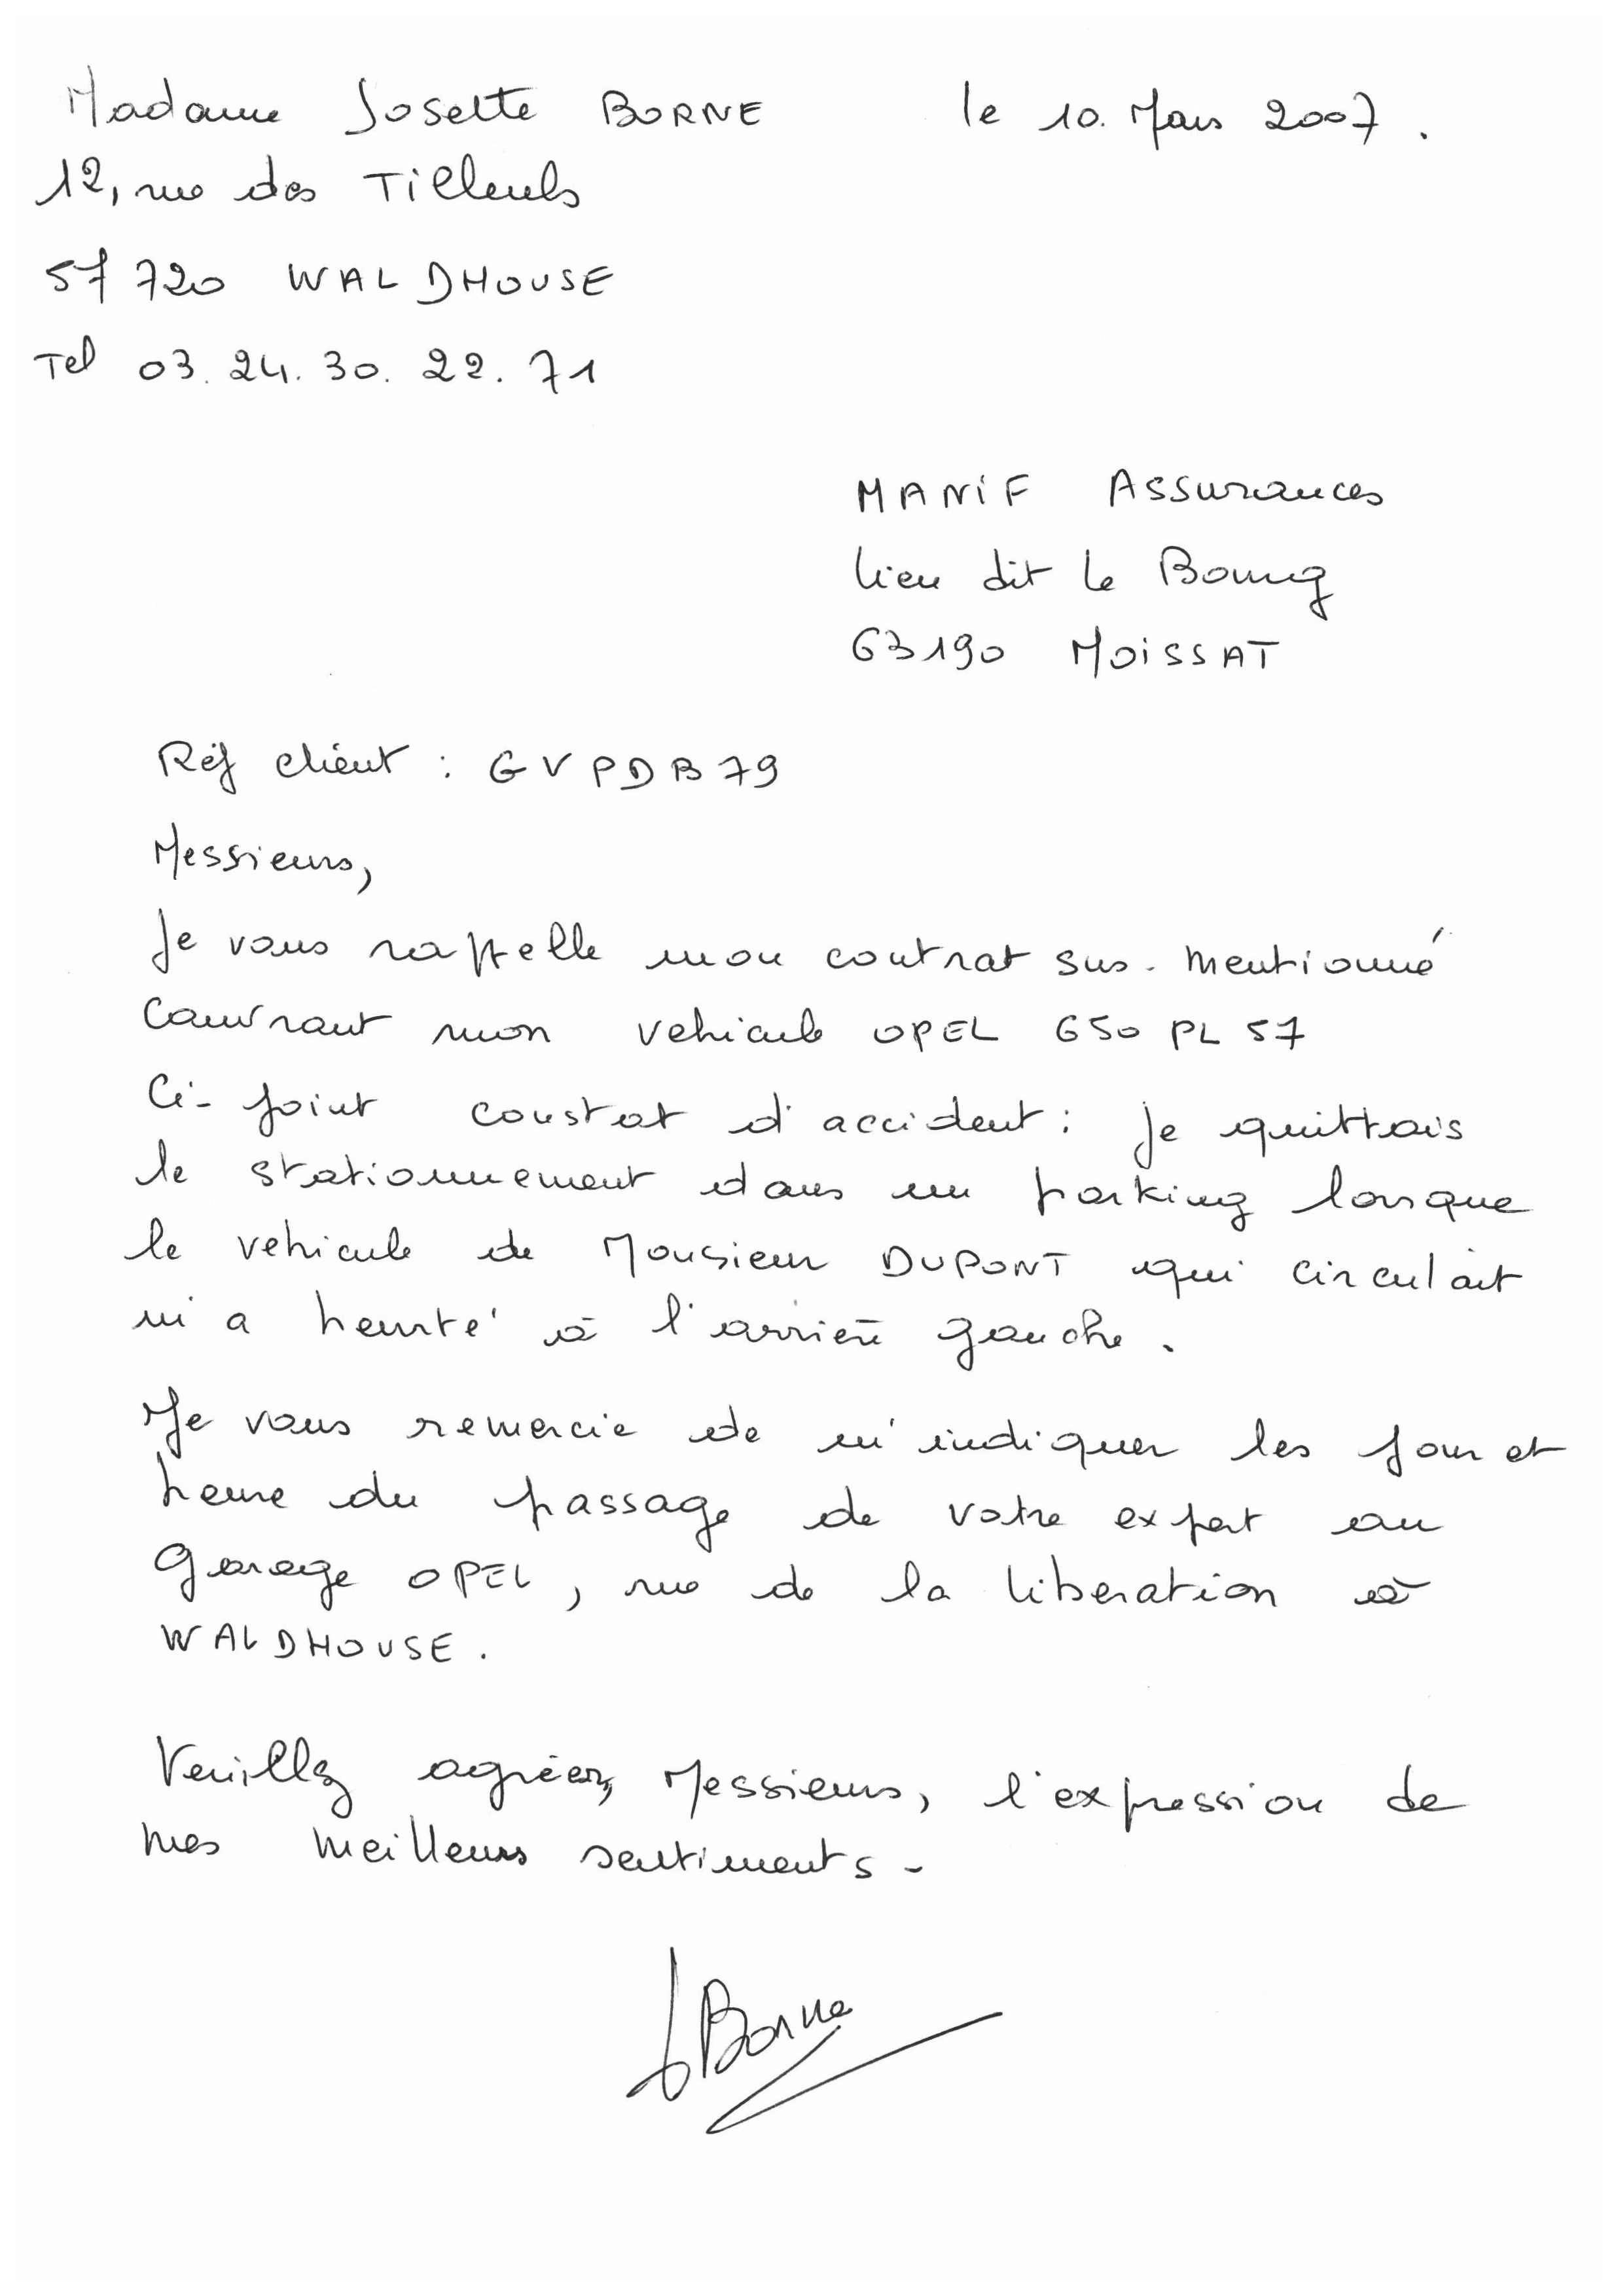 Madame Josette BORNE le 10. Mars 2007.
12, rue des Tilleuls
57 720 WALDHOUSE
Tel 03. 24. 30. 22. 71
MANiF Assurances
lieu dit le Bourg
63190 MOiSSAT
Réf client : GVPDB79
Messieurs,
Je vous rappelle mon contrat sus-mentionné
couvrant mon vehicule OPEL 650 PL 57
Ci-joint constat d'accident : je quittais
le stationnement dans un parking lorsque
le vehicule de Monsieur DUPONT qui circulait
m'a heurté à l'arrière gauche.
Je vous remercie de m'indiquer les jour et
heure du passage de votre expert au
garage OPEL, rue de la liberation à
WALDHOUSE.
Veuillez agréer, Messieurs, l'expression de
mes meilleurs sentiments-
JBorne